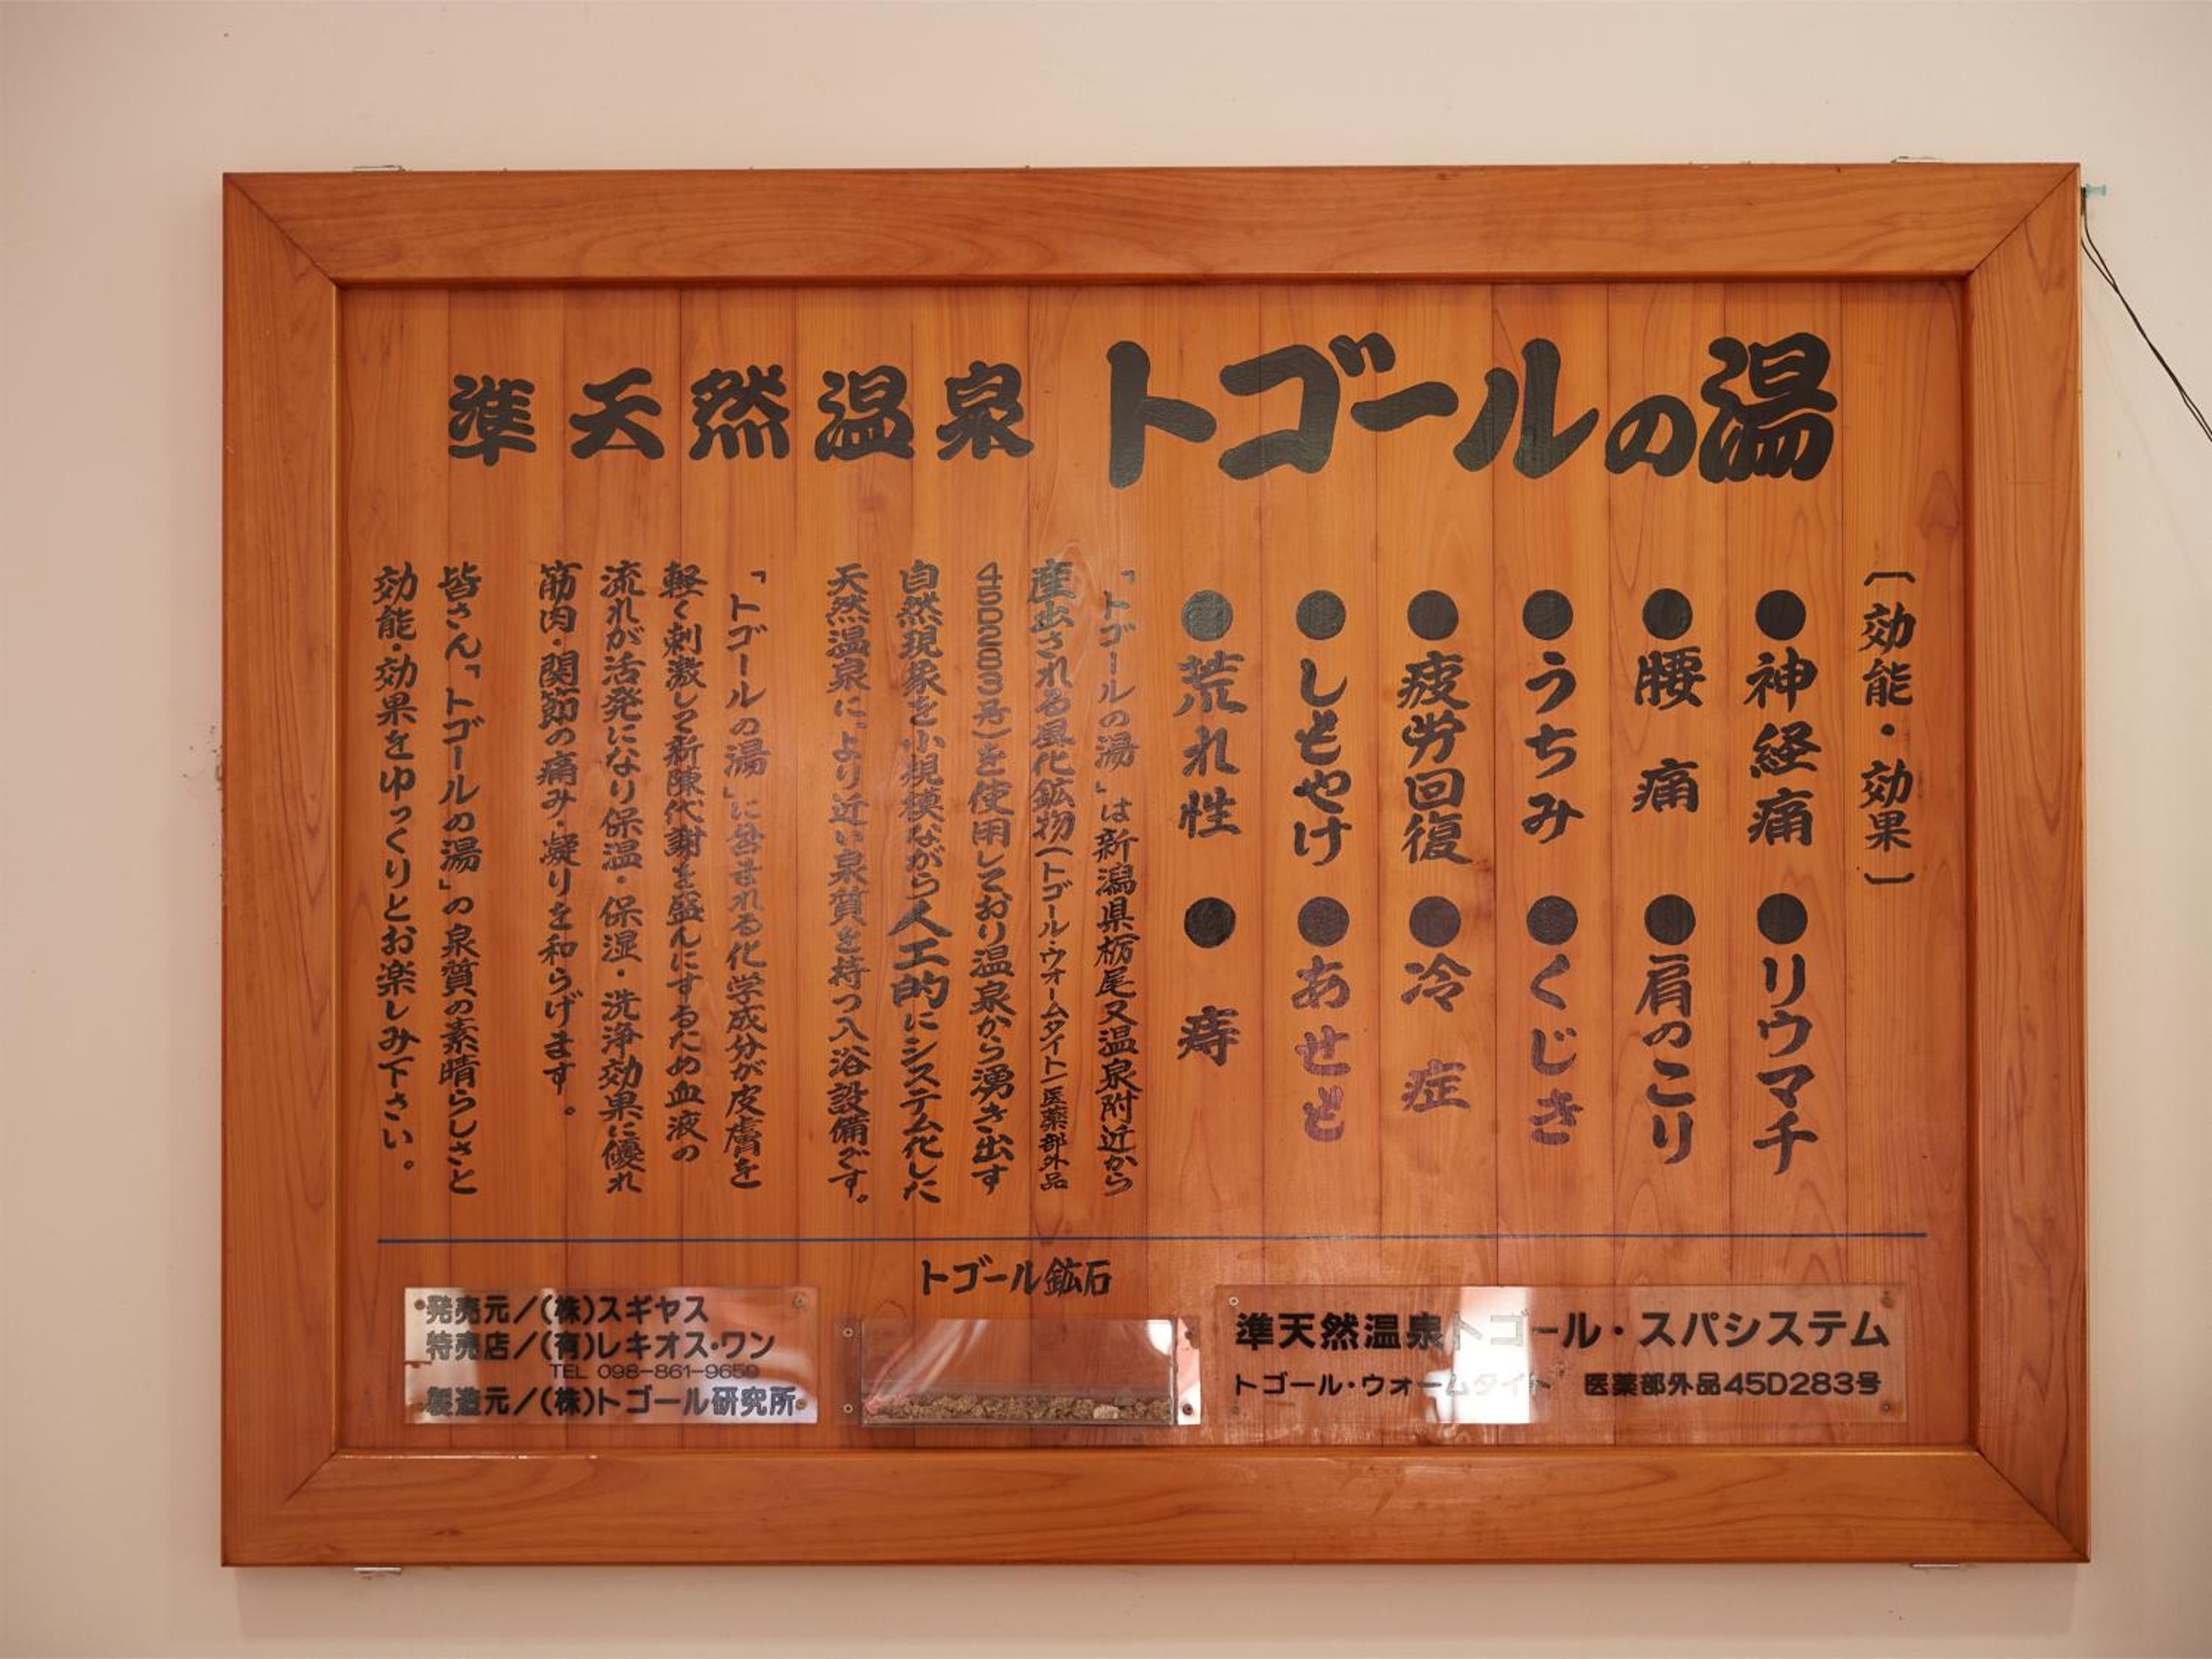 準天然温泉 トゴールの湯
〔効能・効果〕
●神経痛 ●リウマチ
●腰痛 ●肩のこり
●うちみ ●くじき
●疲労回復 ●冷症
●しもやけ ●あせも
●荒れ性 ●痔
「トゴールの湯」は新潟県栃尾又温泉附近から
産出される風化鉱物(トゴール・ウォームタイト)医薬部外品
45D283号)を使用しており温泉から湧き出す
自然現象を小規模ながら人工的にシステム化した
天然温泉により近い泉質を持つ入浴設備です。
「トゴールの湯」に含まれる化学成分が皮膚を
軽く刺激して新陳代謝を盛んにするため血液の
流れが活発になり保温・保湿・洗浄効果に優れ
筋肉・関節の痛み・凝りを和らげます。
皆さん「トゴールの湯」の泉質の素晴らしさと
効能・効果をゆっくりとお楽しみ下さい。
トゴール鉱石
発売元/(株)スギヤス
特売店/(有)レキオス・ワン
TEL 098-861-9659
製造元/(株)トゴール研究所
準天然温泉トゴール・スパシステム
トゴール・ウォームタイト 医薬部外品45D283号